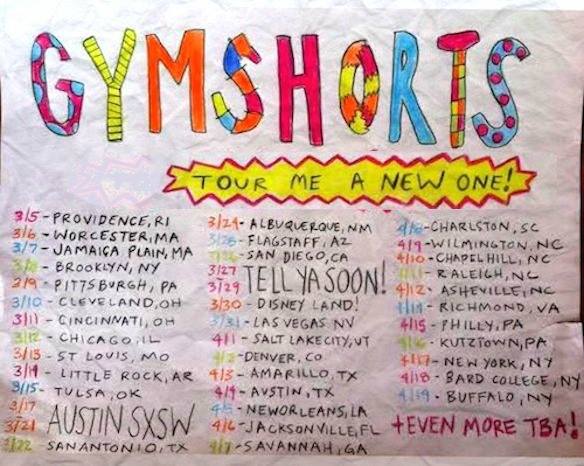 GYMSHORTS
TOUR ME A NEW ONE!
3/5 - PROVIDENCE, RI
3/6 - WORCESTER, MA
3/7 - JAMAICA PLAIN, MA
3/8 - BROOKLYN, NY
3/9 - PITTSBURGH, PA
3/10 - CLEVELAND, OH
3/11 - CINCINNATI, OH
3/12 - CHICAGO, IL
3/13 - ST LOUIS, MO
3/14 - LITTLE ROCK, AR
3/15 - TULSA, OK
3/17
3/21 AUSTIN SXSW
3/22 SAN ANTONIO, TX
3/24 - ALBUQUERQUE, NM
3/25 - FLAGSTAFF, AZ
3/26 - SAN DIEGO, CA
3/27
3/29 TELL YA SOON!
3/30 - DISNEY LAND!
3/31 - LAS VEGAS NV
4/1 - SALT LAKE CITY, UT
4/2 - DENVER, CO
4/3 - AMARILLO, TX
4/4 - AUSTIN, TX
4/5 - NEW ORLEANS, LA
4/6 - JACKSONVILLE, FL
4/7 - SAVANNAH, GA
4/8 - CHARLSTON, SC
4/9 - WILMINGTON, NC
4/10 - CHAPEL HILL, NC
4/11 - RALEIGH, NC
4/12 - ASHEVILLE, NC
- RICHMOND, VA
4/15 - PHILLY, PA
4/16 - KUTZTOWN, PA
4/17 - NEW YORK, NY
4/18 - BARD COLLEGE, NY
4/19 - BUFFALO, NY
+ EVEN MORE TBA!